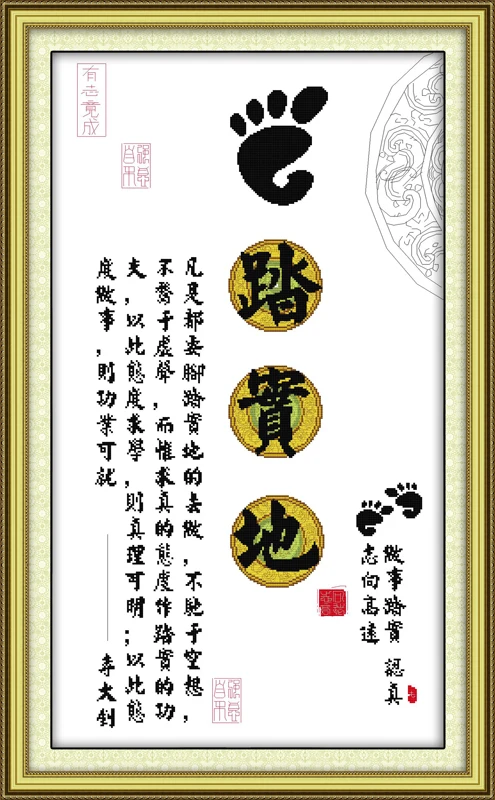 有志竟成
踏實地
做事踏實 認真
志向高遠
凡是都要腳踏實地的去做，不馳于空想，
不騖于虛聲，而惟求真的態度作踏實的功
夫，以此態度求學，則真理可明；以此態
度做事，則功業可就
——李大釗